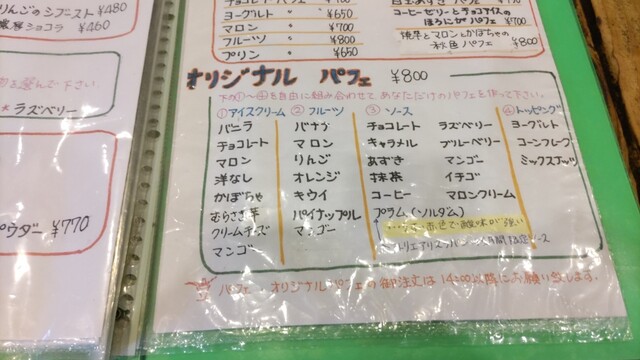 りんごのシブースト ¥480
ショコラ ¥460
んで下さい
★ ラズベリー
パウダー ¥770
チョコレートパフェ
ヨーグルト 〃 ¥650
マロン 〃 ¥700
フルーツ 〃 ¥800
プリン 〃 ¥650
コーヒーゼリーとチョコアイスの
ほろにがパフェ ¥700
焼芋とマロンとかぼちゃの
秋色パフェ ¥800
オリジナル パフェ ¥800
下の①〜④を自由に組み合わせて あなただけのパフェを作って下さい。
①アイスクリーム ②フルーツ ③ソース ④トッピング
バニラ バナナ チョコレート ラズベリー ヨーグルト
チョコレート マロン キャラメル ブルーベリー コーンフレーク
マロン りんご あずき マンゴー ミックスナッツ
洋なし オレンジ 抹茶 イチゴ
かぼちゃ キウイ コーヒー マロンクリーム
むらさき芋 パイナップル プラム(ソルダム)
クリームチーズ マンゴー 赤色で酸味が強い
マンゴ 期間限定ソース
パフェ・オリジナルパフェの御注文は14:00以降にお願い致します。